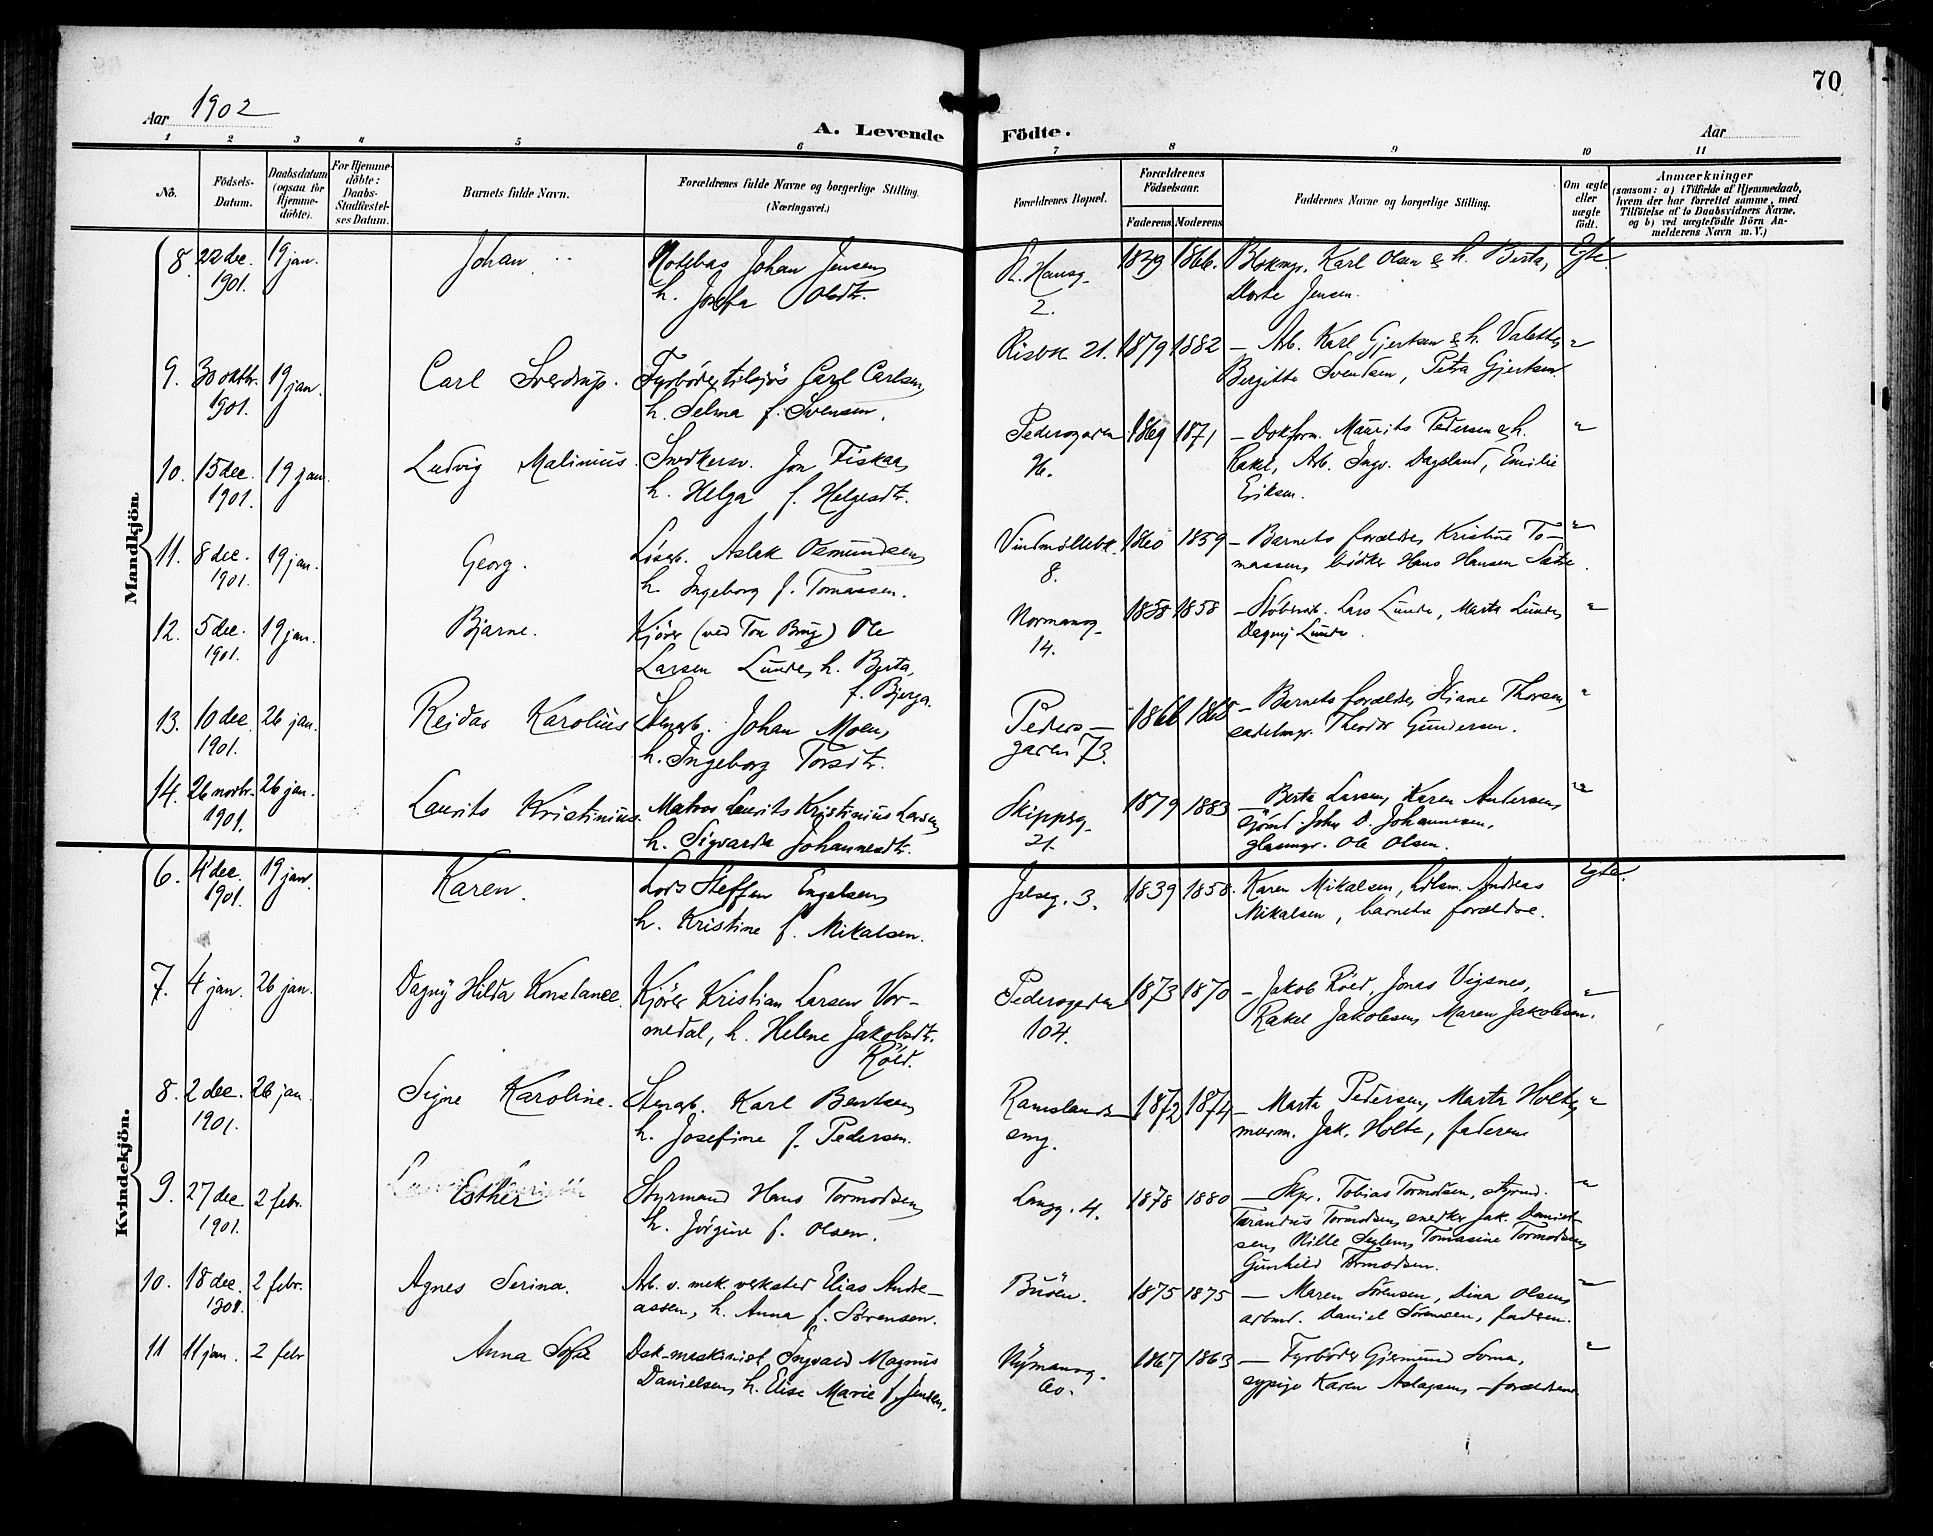 70
Aar 1902
A. Levende Födte.
Aar
1 2 3 4 5 6 7 8 9 10 11
Nö.
Födsels-Datum.
Daabsdatum (ogsaa for Hjemme-döbte).
For Hjemme-döbte: Daabs-Stadfæstel-ses Datum.
Barnets fulde Navn.
Forældrenes fulde Navne og borgerlige Stilling. (Næringsvei.)
Forældrenes Bopæl.
Forældrenes Födselsaar.
Faderens Moderens
Faddernes Navne og borgerlige Stilling.
Om ægte eller uægte födt.
Anmærkninger
(saasom: a) i Tilfælde af Hjemmedaab, hvem der har forrettet samme, med Tilföielse af to Daabsvidners Navne, og b) ved uægtefödte Börn An-melderens Navn m. V.)
Mandkjön
8. 22 dec. 1901. 19 jan. Johan
Johan Jensen,
h. Josefa Olsdtr.
St. Hansg. 2. 1849 1866.
Karl Olsen & h. Berta,
Dorte Jensen.
Egte.
9. 30 oktbr. 1901. 19 jan. Carl Sverdrup.
Fyrböder tilsjös Carl Carlsen,
h. Selma f. Svensen.
Risbk 21. 1879 1882
– Arb. Karl Gjertsen & h. Valette,
Bergitte Svendsen, Petra Gjertsen.
"
10. 15 dec. 1901. 19 jan. Ludvig Malinius.
Snedkersv. Jon Fiskaa,
h. Helga f. Helgesdtr.
Pedersgaden 96. 1869 1871
– Dokform. Maurits Pedersen & h.
Rakel, Arb. Ingv. Dagsland, Emilie
Eriksen.
"
11. 8 dec. 1901. 19 jan. Georg.
Lösarb. Aslak Osmundsen,
h. Ingeborg f. Tomassen.
Vindmöllebk. 8. 1860 1859
– Barnets forældre, Kristine To-
massen, bödker Hans Hansen
"
12. 5 dec. 1901. 19 jan. Bjarne.
Kjörer (ved Tou Brug) Ole
Larsen Lunde, h. Berta,
f. Bjerga.
Normansg. 14. 1858 1858
– Lars Lunde, Marta Lunde,
Dagny Lunde.
"
13. 10 dec. 1901. 26 jan. Reidar Karolius
Stenarb. Johan Moen,
h. Ingeborg Torsdtr.
Peders-
gaden 73. 1866 1868
– Barnets forældre, Thorsen,
sadelmgr. Theodor Gundersen.
"
14. 26 novbr. 1901. 26 jan. Laurits Kristinius.
Matros Laurits Kristinius Larsen,
h. Sigvarda Johannesdtr.
Skipperg. 21. 1879 1883
– Berta Larsen, Karen Andersen,
sjömd. John D. Johannesen,
glasmgr. Ole Olsen.
"
Kvindekjön.
6. 4 dec. 1901. 19 jan. Karen.
Lods Steffen Engelsen,
h. Kristine f. Mikalsen.
Jelseg. 3. 1839 1858.
Karen Mikalsen, Andreas
Mikalsen, barnets forældre.
Egte.
7. 4 jan. 26 jan. Dagny Hilda Konstance.
Kjörer Kristian Larsen Vor-
medal, h. Helene Jakobsdtr.
Röed.
Pedersgaden 104. 1873 1870
– Jakob Röed, Jonas Vigsnes,
Rakel Jakobsen, Maren Jakobsen.
"
8. 2 dec. 1901. 26 jan. Signe Karoline.
Stenarb. Karl Bertsen,
h. Josefine f. Pedersen.
Ramslands-
smg. 1872 1874
– Marta Pedersen, Marta Holte,
murm. Jak. Holte, faderen
"
9. 27 dec 1901. 2 febr. Esther
Styrmand Hans Tormodsen,
h. Jörgine f. Olsen.
Langg. 4. 1878 1880
– Skpr. Tobias Tormodsen, styrmd.
Tarandus Tormodsen, snedker Jak. Daniel-
sen, Nille Seglem, Tomasine Tormodsen,
Gunhild Tormodsen.
"
10. 18 dec. 1901. 2 febr. Agnes Serina.
Arb. v. mek. verksted Elias Andre-
assen, h. Anna f. Sörensen.
Buöen. 1875 1875
– Maren Sörensen, Dina Olsen,
arbmd. Daniel Sörensen, faderen.
"
11 11 jan. 2 febr Anna Sofie
Dsk-maskinist Ingvald Magnus
Danielsen, h. Elise Marie f. Jensen.
Nymansg. 1867 1863
– Fyrböder Gjermund Soma,
sypige Karen Aslagsen, – forældrene
"